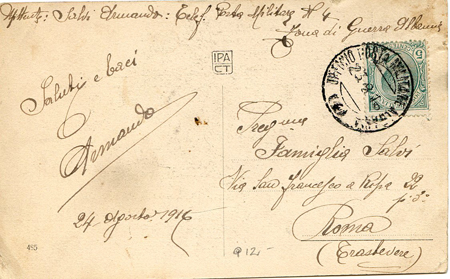 Salvi Armando: Telef. Posta Militare N 4
Zona di Guerra Albania
IPA
CT
UFFICIO POSTA MILITARE
Saluti e baci
Armando
24 Agosto 1916
Pregma
Famiglia Salvi
Via San Francesco a Ripa 22
Roma
(Trastevere)
495
@12.-